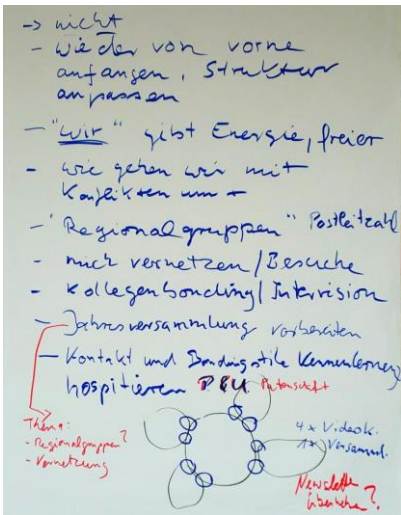 -> nicht
- wieder von vorne
anfangen, Struktur
anpassen
- "Wir" gibt Energie, freier
- wie gehen wir mit
Konflikten um
- "Regionalgruppen" Postleitzahl
- mich vernetzen/Besuche
- Kollegenbonding/Intervision
- Jahresversammlung vorbereiten
- Kontakt und Bondingstile Kennenlernen
hospitieren Patenschaft
Thema:
- Regionalgruppen?
- Vernetzung
4x Videok.
1x Versamml.
Newsletter
überleben?